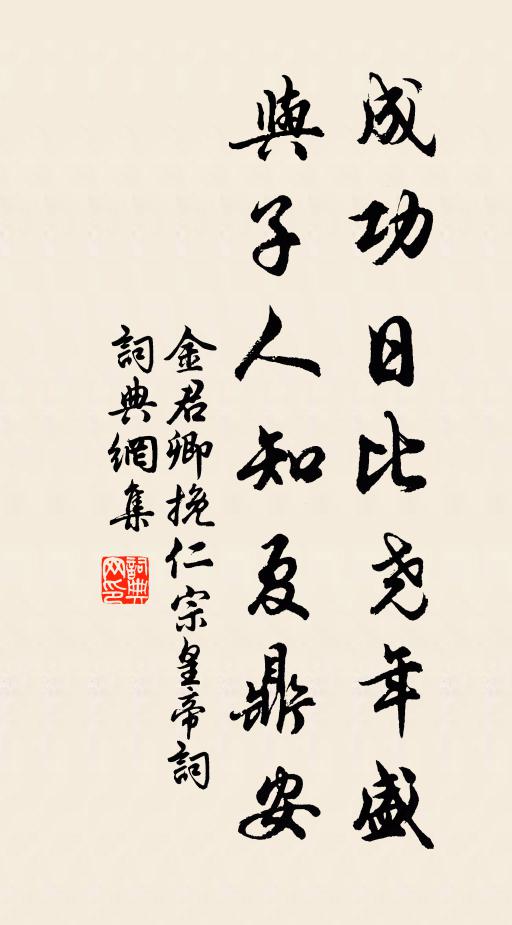 成功日比尧年盛
與子人知夏鼎安
金君卿挽仁宗皇帝詞
詞典網集
詞典网印